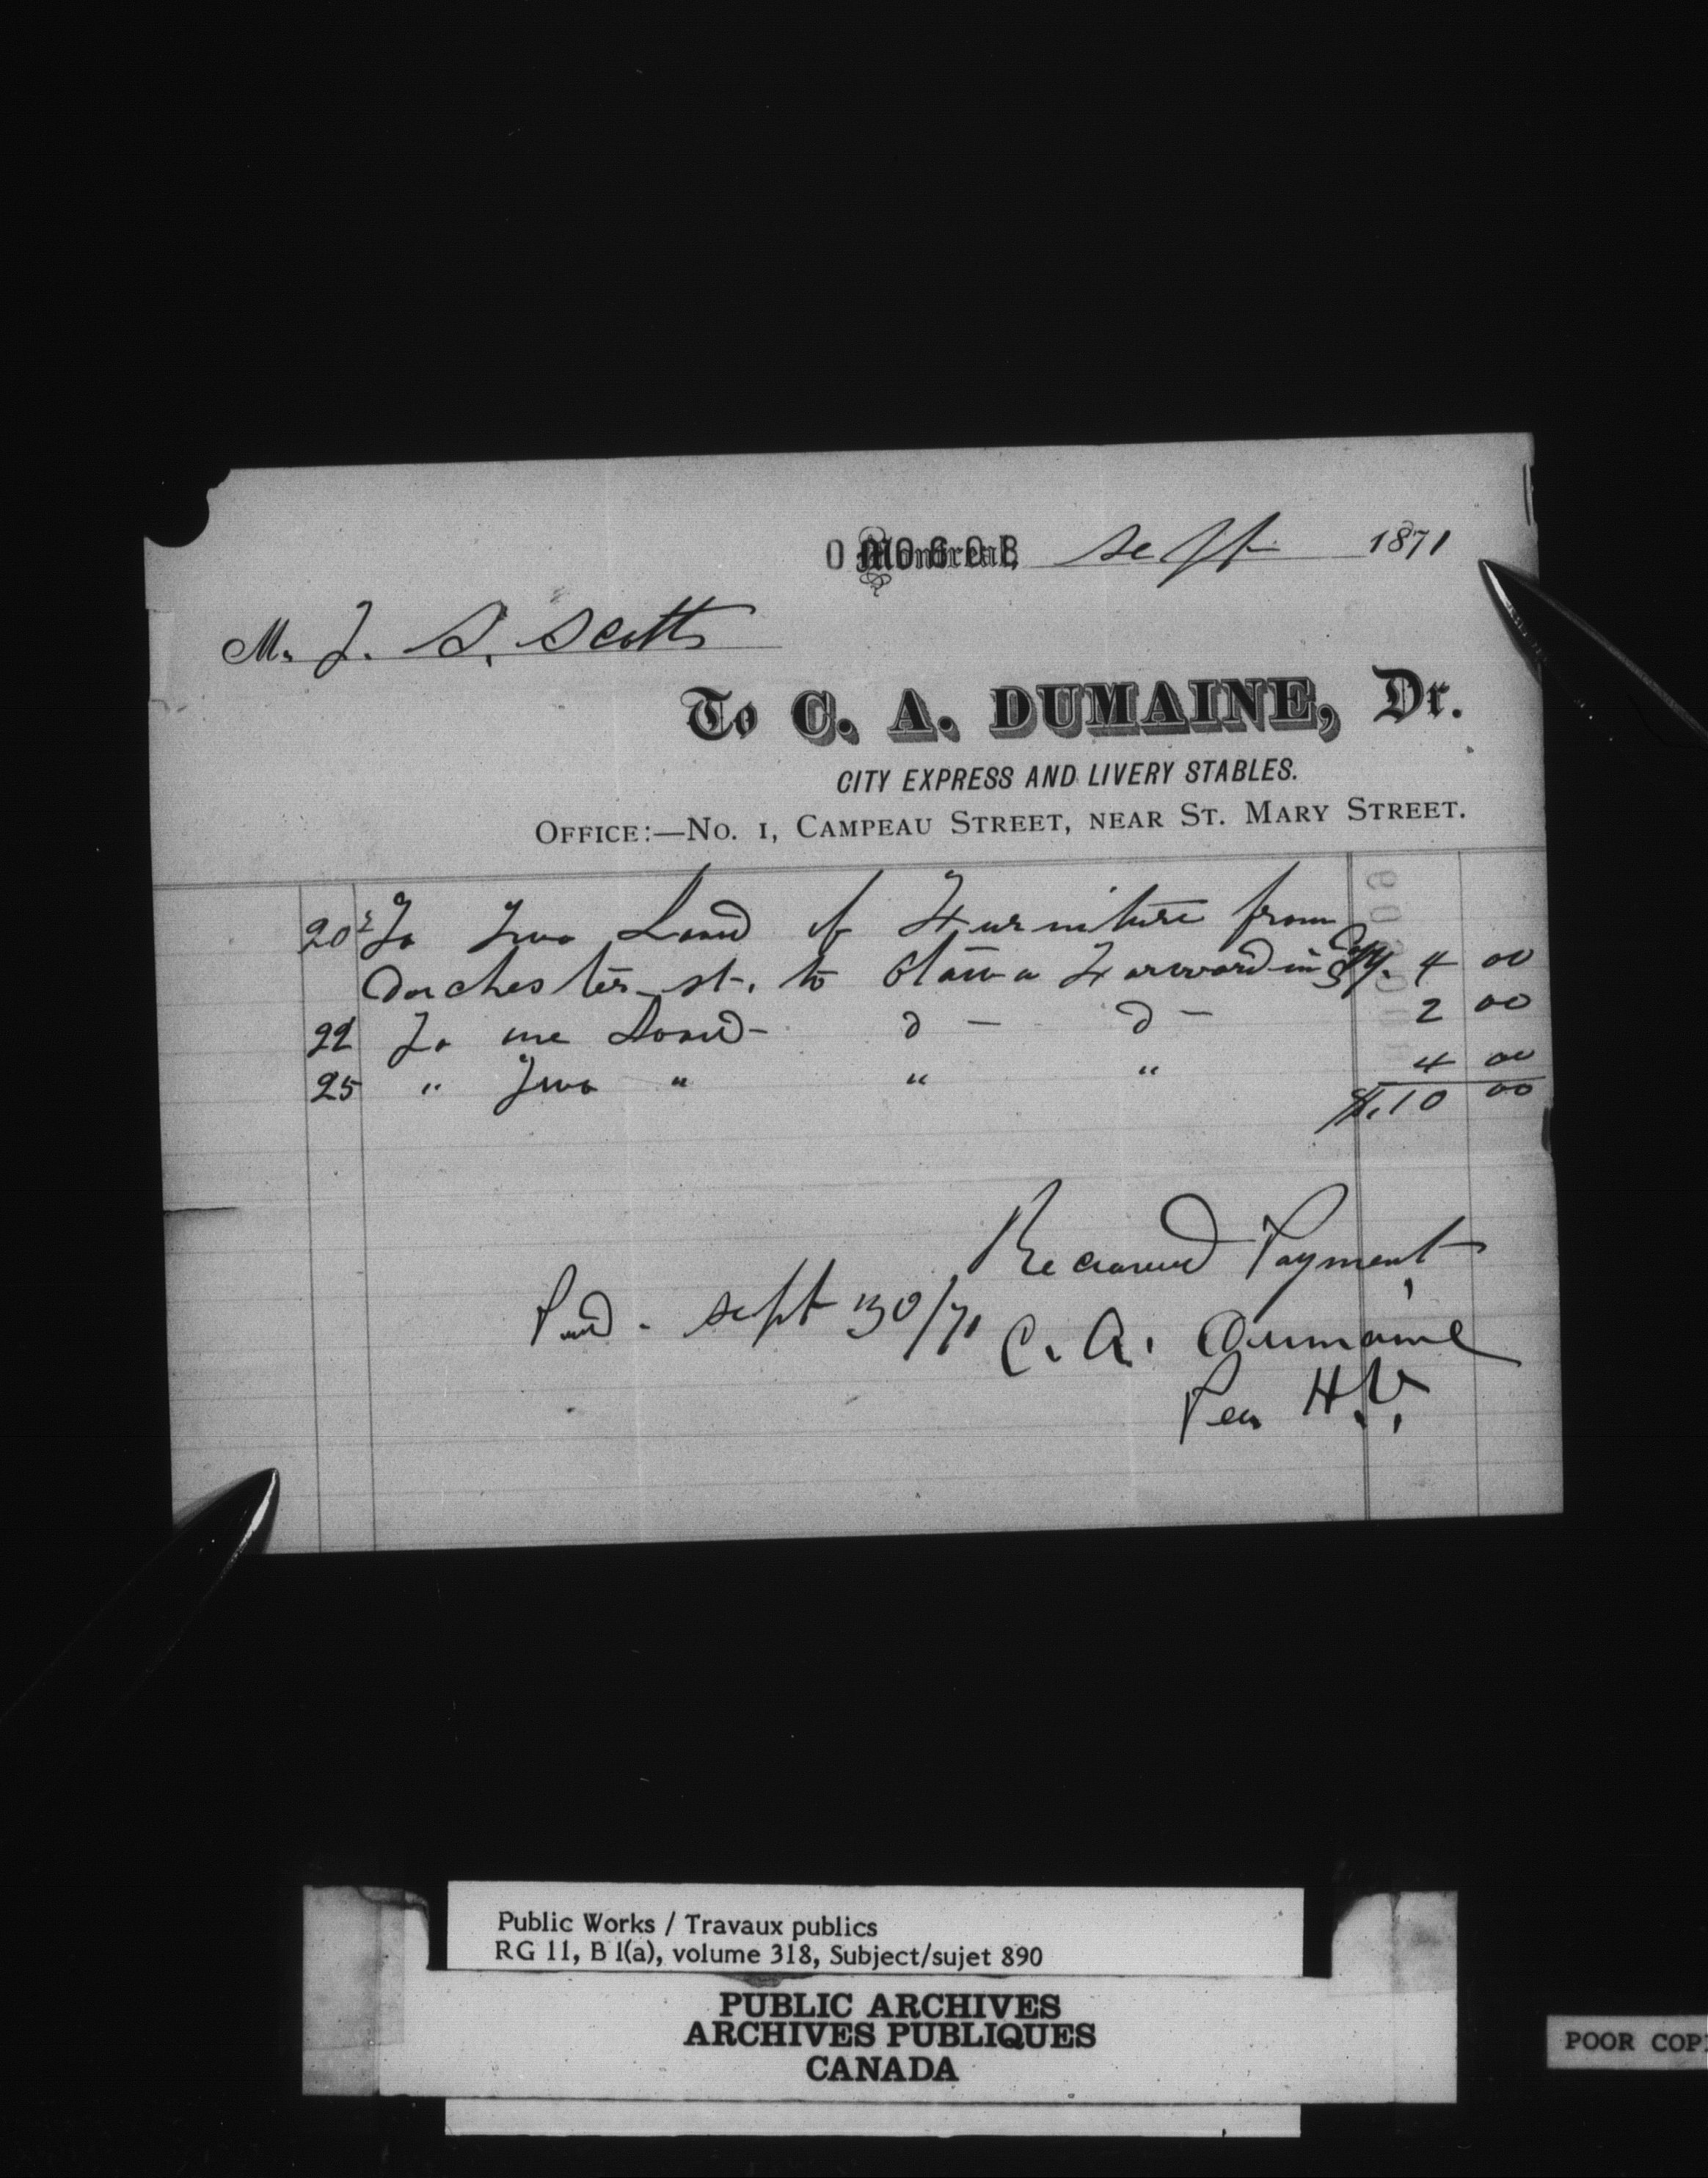 Montreal, sept 1871
Mr J. S. Scott
To C. A. DUMAINE, Dr.
CITY EXPRESS AND LIVERY STABLES.
OFFICE:—NO. 1, CAMPEAU STREET, NEAR ST. MARY STREET.
20 To Two Load of Furniture from
Dorchester st. to Otawa Forwarding 4 00
22 To one Load - d - d - 2 00
25 " Two " " " 4 00
$.10 00
Received Payment
Paid. sept 30/71 C. A. Dumaine
Per H.V.
Public Works / Travaux publics
RG 11, B 1(a), volume 318, Subject/sujet 890
PUBLIC ARCHIVES
ARCHIVES PUBLIQUES
CANADA
POOR COP